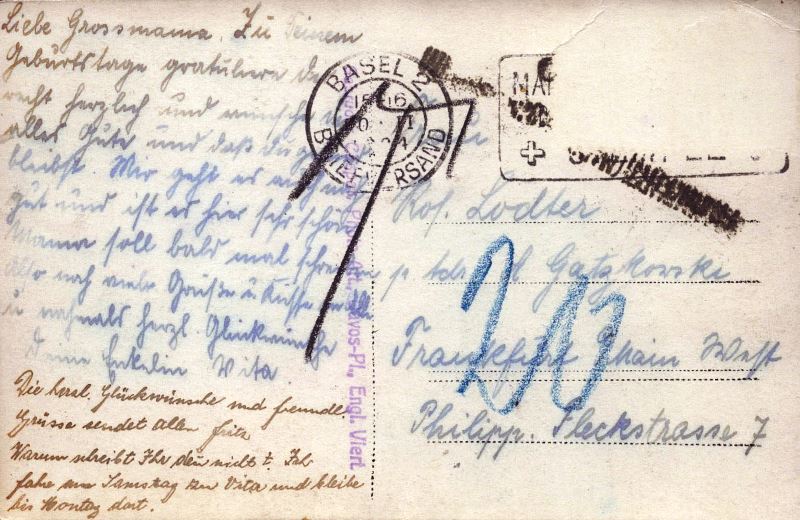 Liebe Grossmama. Zu Deinem
Geburtstage gratuliere
recht herzlich und wünsche
alles Gute und daß du
bleibst. Mir geht es auch
gut und ist es hier sehr schön
Mama soll bald mal schreiben
Also noch viele Grüße u. Küsse
u. nochmals herzl. Glückwünsche
Deine Enkelin Vita
Die herzl. Glückwünsche und freundl.
Grüsse sendet allen Fritz
Warum schreibt Ihr den nicht? Ich
fahre am Samstag zu Vita und bleibe
bis Montag dort.
BASEL 2
BRIEFVERSAND
Davos-Pl., Engl. Viert.
Ros. Lodter
p. Adr. Gatzkowski
Frankfurt Main West
Philipp Fleckstrasse 7
20